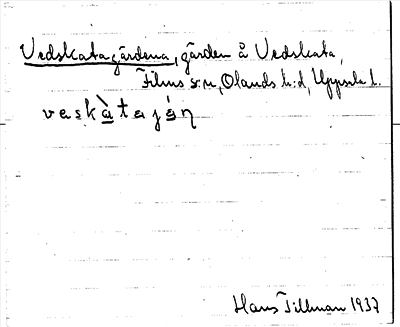 Vedskatagårdena, gården å Vedskata,
Films s:n, Olands h:d, Uppsala l.
vaskàtaján
Hans Tillman 1937